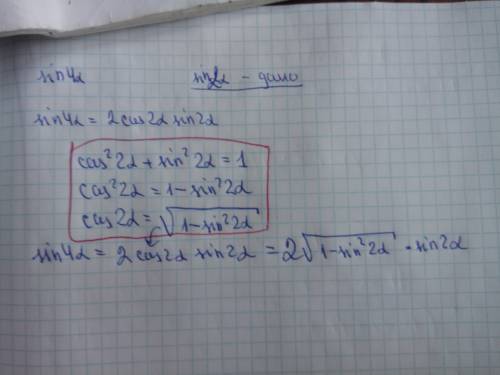 sin4α sin2α - дано
sin4α = 2cos2α sin2α
cos²2α + sin²2α = 1
cos²2α = 1 - sin²2α
cos2α = √(1-sin²2α)
sin4α = 2cos2α sin2α = 2√(1-sin²2α) · sin2α